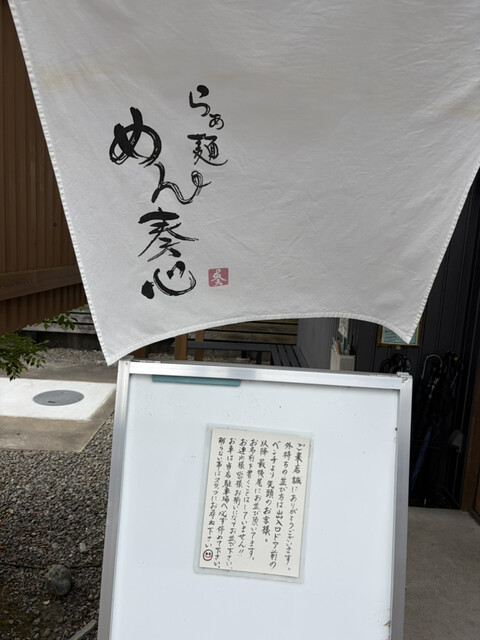 らぁ麺
めん奏心
ご来店誠にありがとうございます。
外待ちの並び方は出入口ドア前の
ベンチより先頭のお客様。
以降最後尾にお並び頂いてます。
お名前を書くことはしていません!!
お連れ様皆様お揃いになってお並び下さい。
お車は当店駐車場へ必ず停めて下さい。
解らない事はスタッフにお尋ね下さい